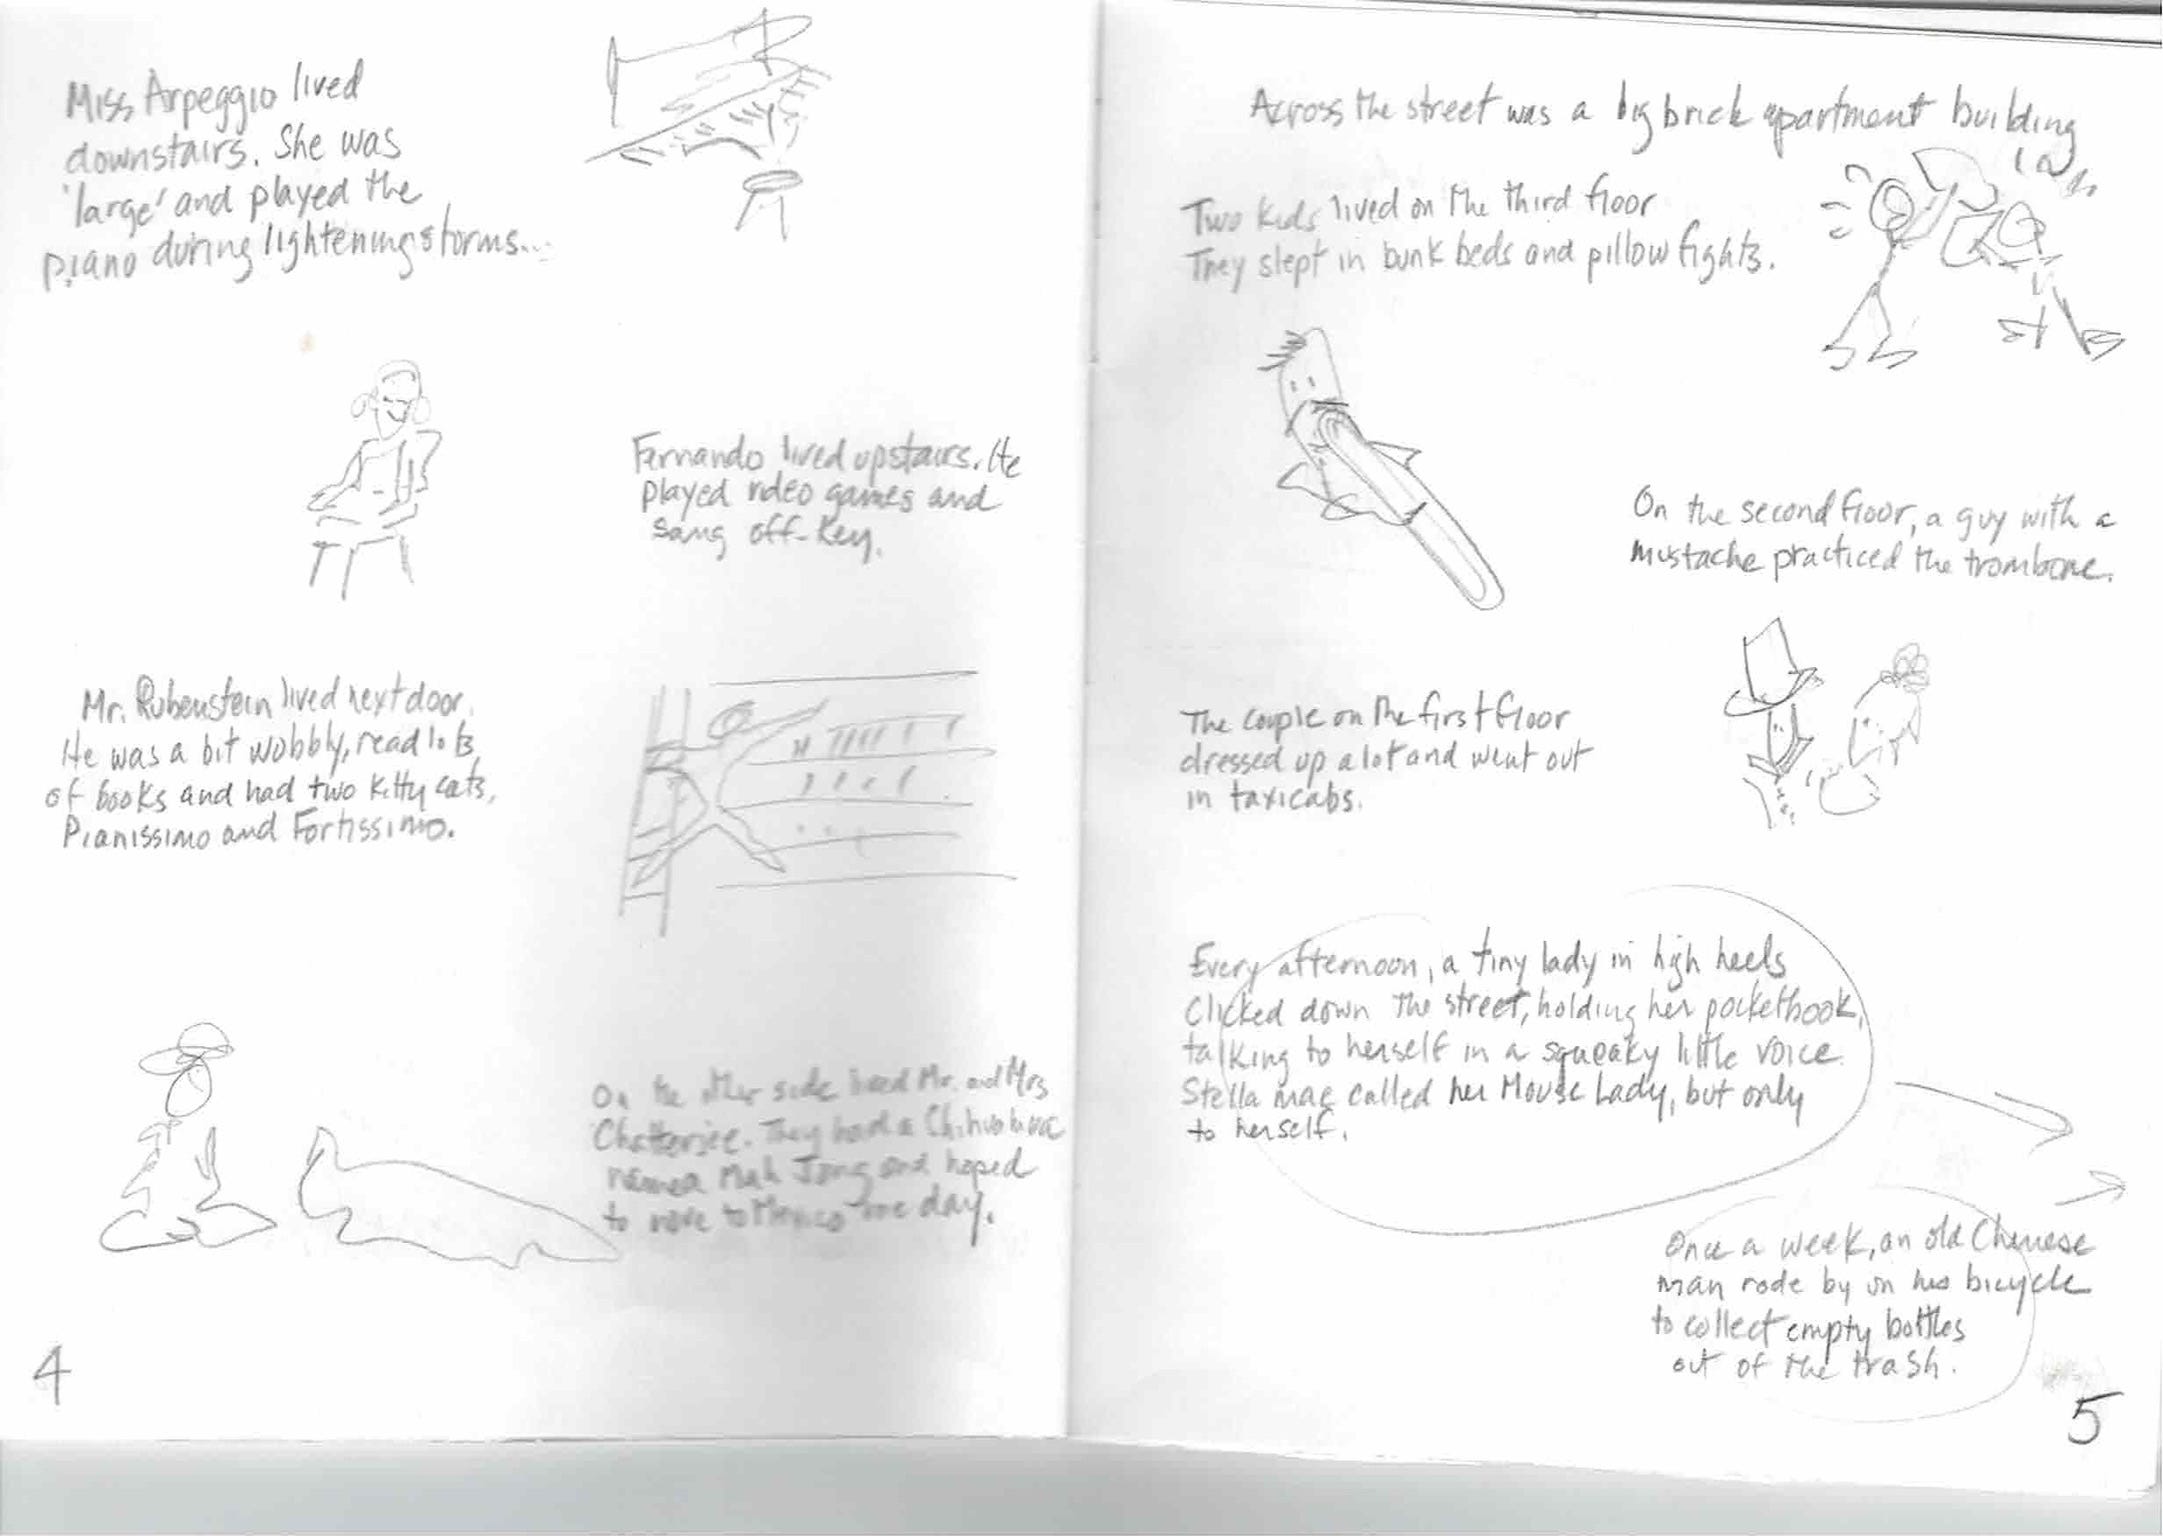 Miss Arpeggio lived
downstairs. She was
'large' and played the
piano during lightening storms...
Fernando lived upstairs. He
played video games and
sang off-key.
Mr. Rubenstein lived next door.
He was a bit wobbly, read lots
of books and had two kitty cats,
Pianissimo and Fortissimo.
On the other side lived Mr. and Mrs
Chatterjee. They had a Chihuahua
named Mah Jong and hoped
to move to Mexico one day.
4
Across the street was a big brick apartment building
Two kids lived on the third floor
They slept in bunk beds and pillow fights.
On the second floor, a guy with a
mustache practiced the trombone.
The couple on the first floor
dressed up a lot and went out
in taxicabs.
Every afternoon, a tiny lady in high heels
clicked down the street, holding her pocketbook,
talking to herself in a squeaky little voice.
Stella mae called her Mouse Lady, but only
to herself.
Once a week, an old Chinese
man rode by on his bicycle
to collect empty bottles
out of the trash.
5